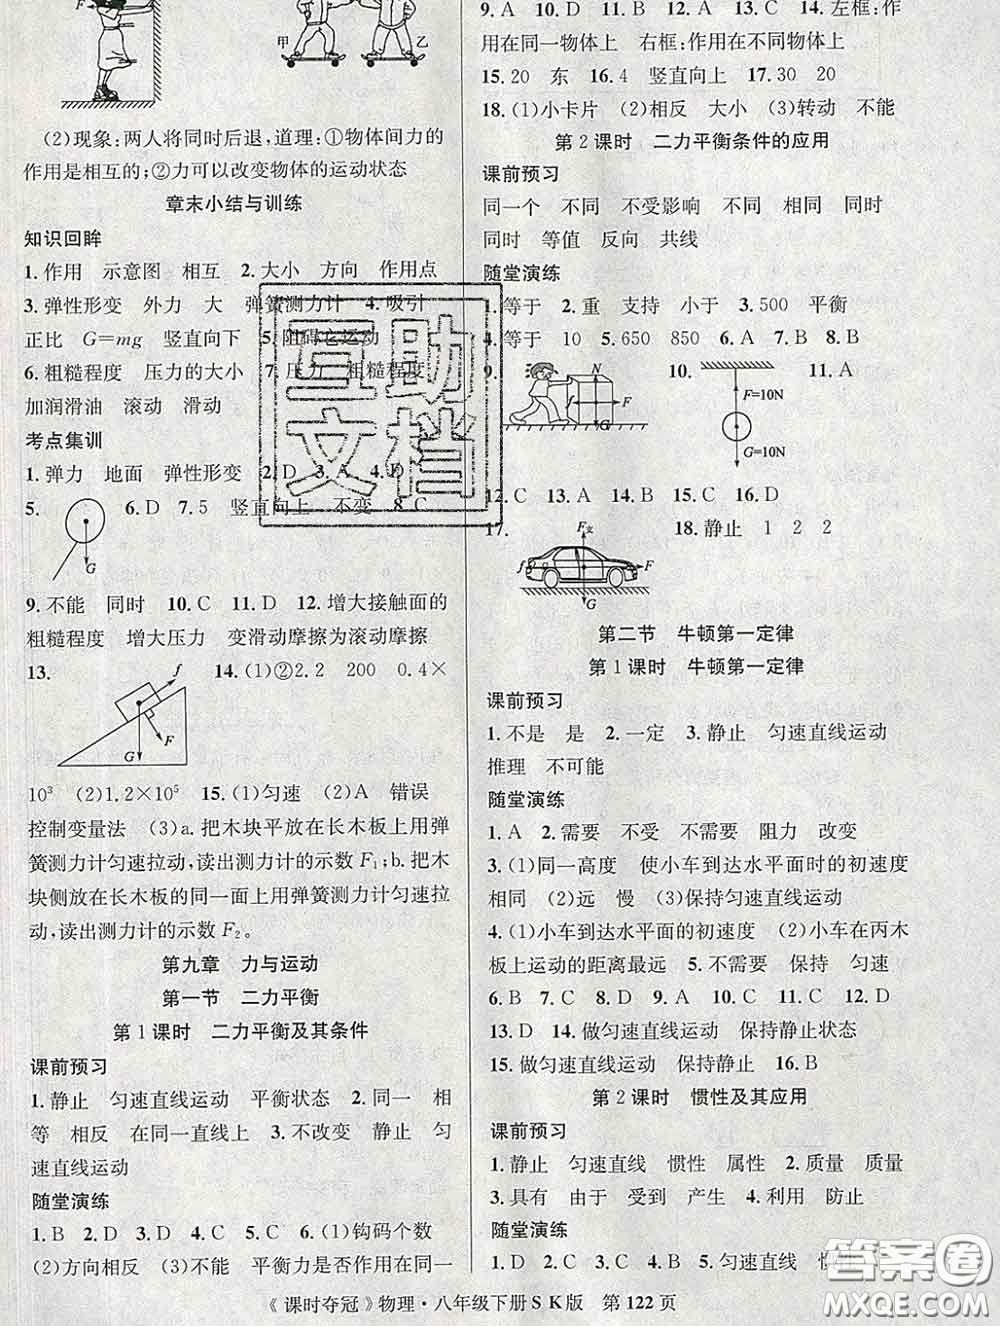 F
甲 乙
(2)现象:两人将同时后退,道理:①物体间力的
作用是相互的;②力可以改变物体的运动状态
章末小结与训练
知识回眸
1.作用 示意图 相互 2.大小 方向 作用点
3.弹性形变 外力 大 弹簧测力计 4.吸引
正比 G=mg 竖直向下 5.阻碍它运动
6.粗糙程度 压力的大小 7.压力 粗糙程度
加润滑油 滚动 滑动
考点集训
1.弹力 地面 弹性形变 2.D 3.A 4.D
5. 6.D 7.5 竖直向上 不变 8.C
G
9.不能 同时 10.C 11.D 12.增大接触面的
粗糙程度 增大压力 变滑动摩擦为滚动摩擦
13. 14.(1)②2.2 200 0.4×
f
F
G
10³ (2)1.2×10⁵ 15.(1)匀速 (2)A 错误
控制变量法 (3)a.把木块平放在长木板上用弹
簧测力计匀速拉动,读出测力计的示数F₁;b.把木
块侧放在长木板的同一面上用弹簧测力计匀速拉
动,读出测力计的示数F₂。
第九章 力与运动
第一节 二力平衡
第1课时 二力平衡及其条件
课前预习
1.静止 匀速直线运动 平衡状态 2.同一 相
等 相反 在同一直线上 3.不改变 静止 匀
速直线运动
随堂演练
1.B 2.D 3.D 4.C 5.C 6.(1)钩码个数
(2)方向相反 (3)不能 力是否作用在同一
9.A 10.D 11.B 12.A 13.C 14.左框:作
用在同一物体上 右框:作用在不同物体上
15.20 东 16.4 竖直向上 17.30 20
18.(1)小卡片 (2)相反 大小 (3)转动 不能
第2课时 二力平衡条件的应用
课前预习
同一个 不同 不受影响 不同 相同 同时
同时 等值 反向 共线
随堂演练
1.等于 2.重 支持 小于 3.500 平衡
4.等于 10 5.650 850 6.A 7.B 8.B
9. 10. 11.A
N
f F
G
F=10N
G=10N
12.C 13.A 14.B 15.C 16.D
17. 18.静止 1 2 2
F支
f F
G
第二节 牛顿第一定律
第1课时 牛顿第一定律
课前预习
1.不是 是 2.一定 3.静止 匀速直线运动
推理 不可能
随堂演练
1.A 2.需要 不受 不需要 阻力 改变
3.(1)同一高度 使小车到达水平面时的初速度
相同 (2)远 慢 (3)保持匀速直线运动
4.(1)小车到达水平面的初速度 (2)小车在丙木
板上运动的距离最远 5.不需要 保持 匀速
6.B 7.D 8.C 9.A 10.C 11.A 12.B
13.D 14.做匀速直线运动 保持静止状态
15.做匀速直线运动 保持静止 16.B
第2课时 惯性及其应用
课前预习
1.静止 匀速直线 惯性 属性 2.质量 质量
3.具有 由于 受到 产生 4.利用 防止
随堂演练
1.D 2.C 3.D 4.D 5.匀速直线 惯性
《课时夺冠》物理·八年级下册SK版 第122页
互助
文档
答案圈
MXQE.COM